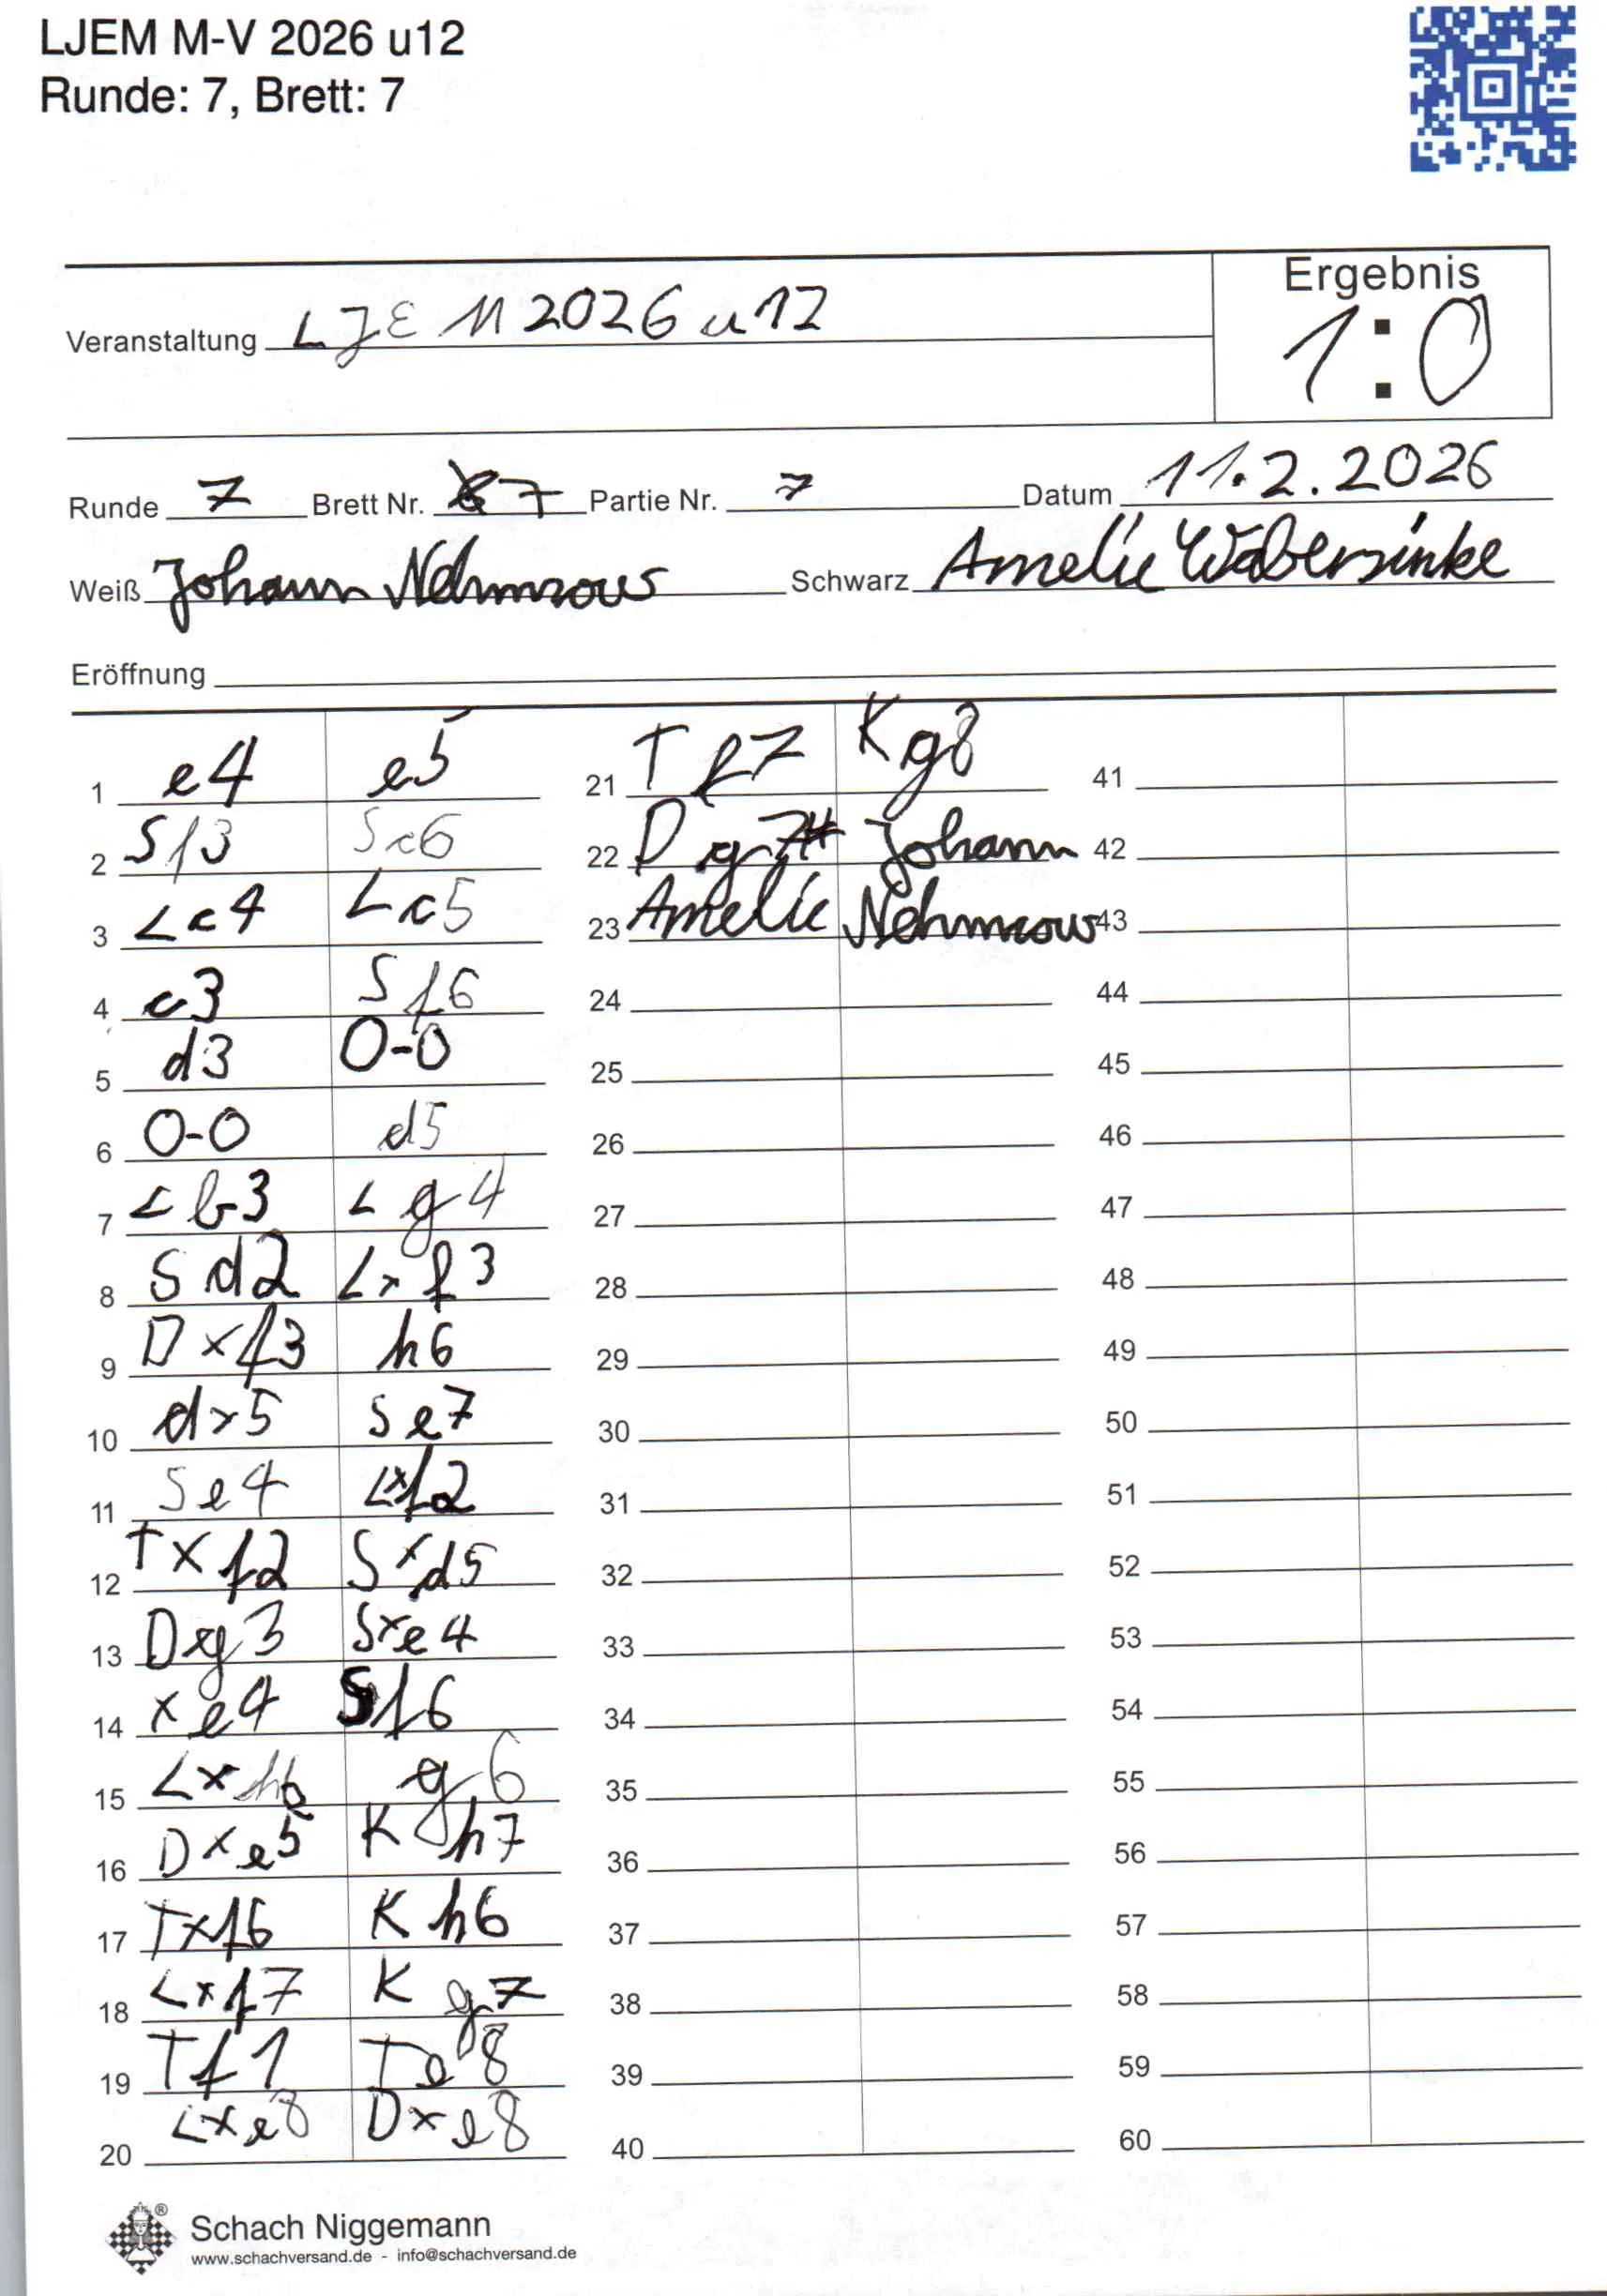 LJEM M-V 2026 u12
Runde: 7, Brett: 7
Ergebnis
Veranstaltung LJEM 2026 u12
1:0
Runde 7 Brett Nr. 7 Partie Nr. 7 Datum 11.2.2026
Weiß Johann Nehmzow Schwarz Amelie Wabersinke
Eröffnung
1 e4 e5
2 Sf3 Sc6
3 Lc4 Lc5
4 c3 Sf6
5 d3 0-0
6 0-0 d5
7 Lb3 Lg4
8 Sd2 Lxf3
9 Dxf3 h6
10 dx5 Se7
11 Se4 Lxf2
12 Txf2 Sxd5
13 Dxg3 Sxe4
14 xe4 Sf6
15 Lxh6 g6
16 Dxe5 Kh7
17 Txf6 Kh6
18 Lxf7 Kg7
19 Tf1 Te8
20 Lxe8 Dxe8
21 Tf7 Kg8
22 Dg7# Johann
23 Amelie Nehmzow
24
25
26
27
28
29
30
31
32
33
34
35
36
37
38
39
40
41
42
43
44
45
46
47
48
49
50
51
52
53
54
55
56
57
58
59
60
Schach Niggemann
www.schachversand.de - info@schachversand.de